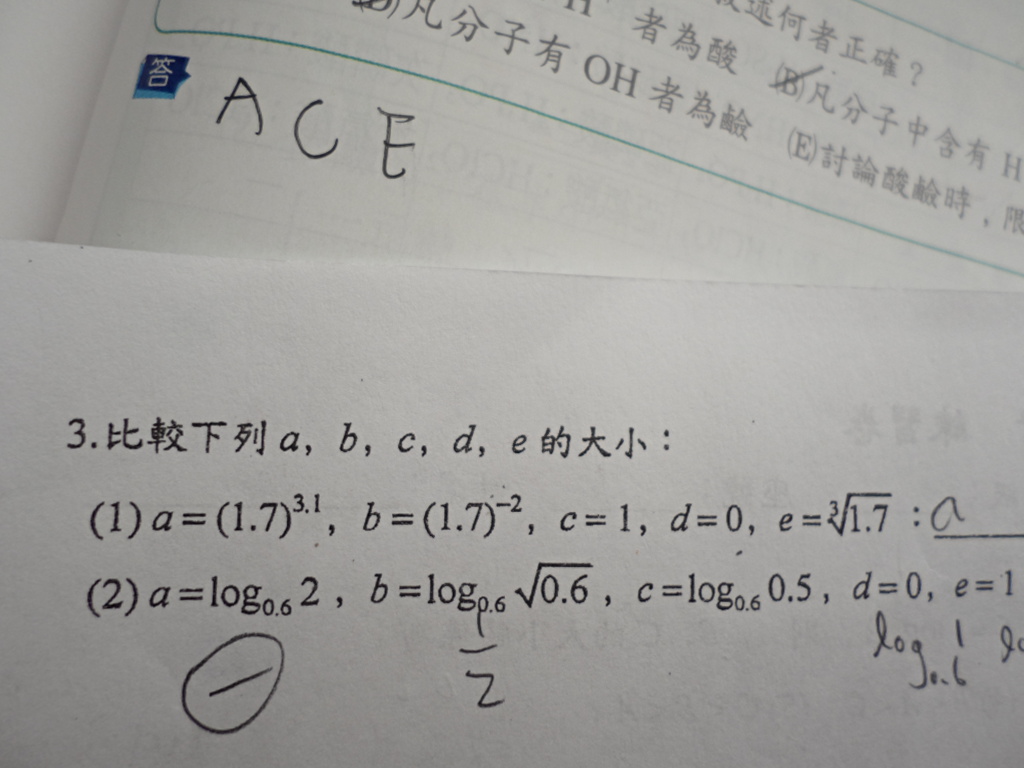 述何者正確？
H⁺ 者為酸 (B)凡分子中含有H
(D)凡分子有OH者為鹼 (E)討論酸鹼時，限
答 A C E
3.比較下列a, b, c, d, e的大小：
(1) a=(1.7)^3.1, b=(1.7)^−2, c=1, d=0, e=∛1.7 : a
(2) a=log₀.₆2, b=log₀.₆√0.6, c=log₀.₆0.5, d=0, e=1
− 1/2 log₀.₆ 1